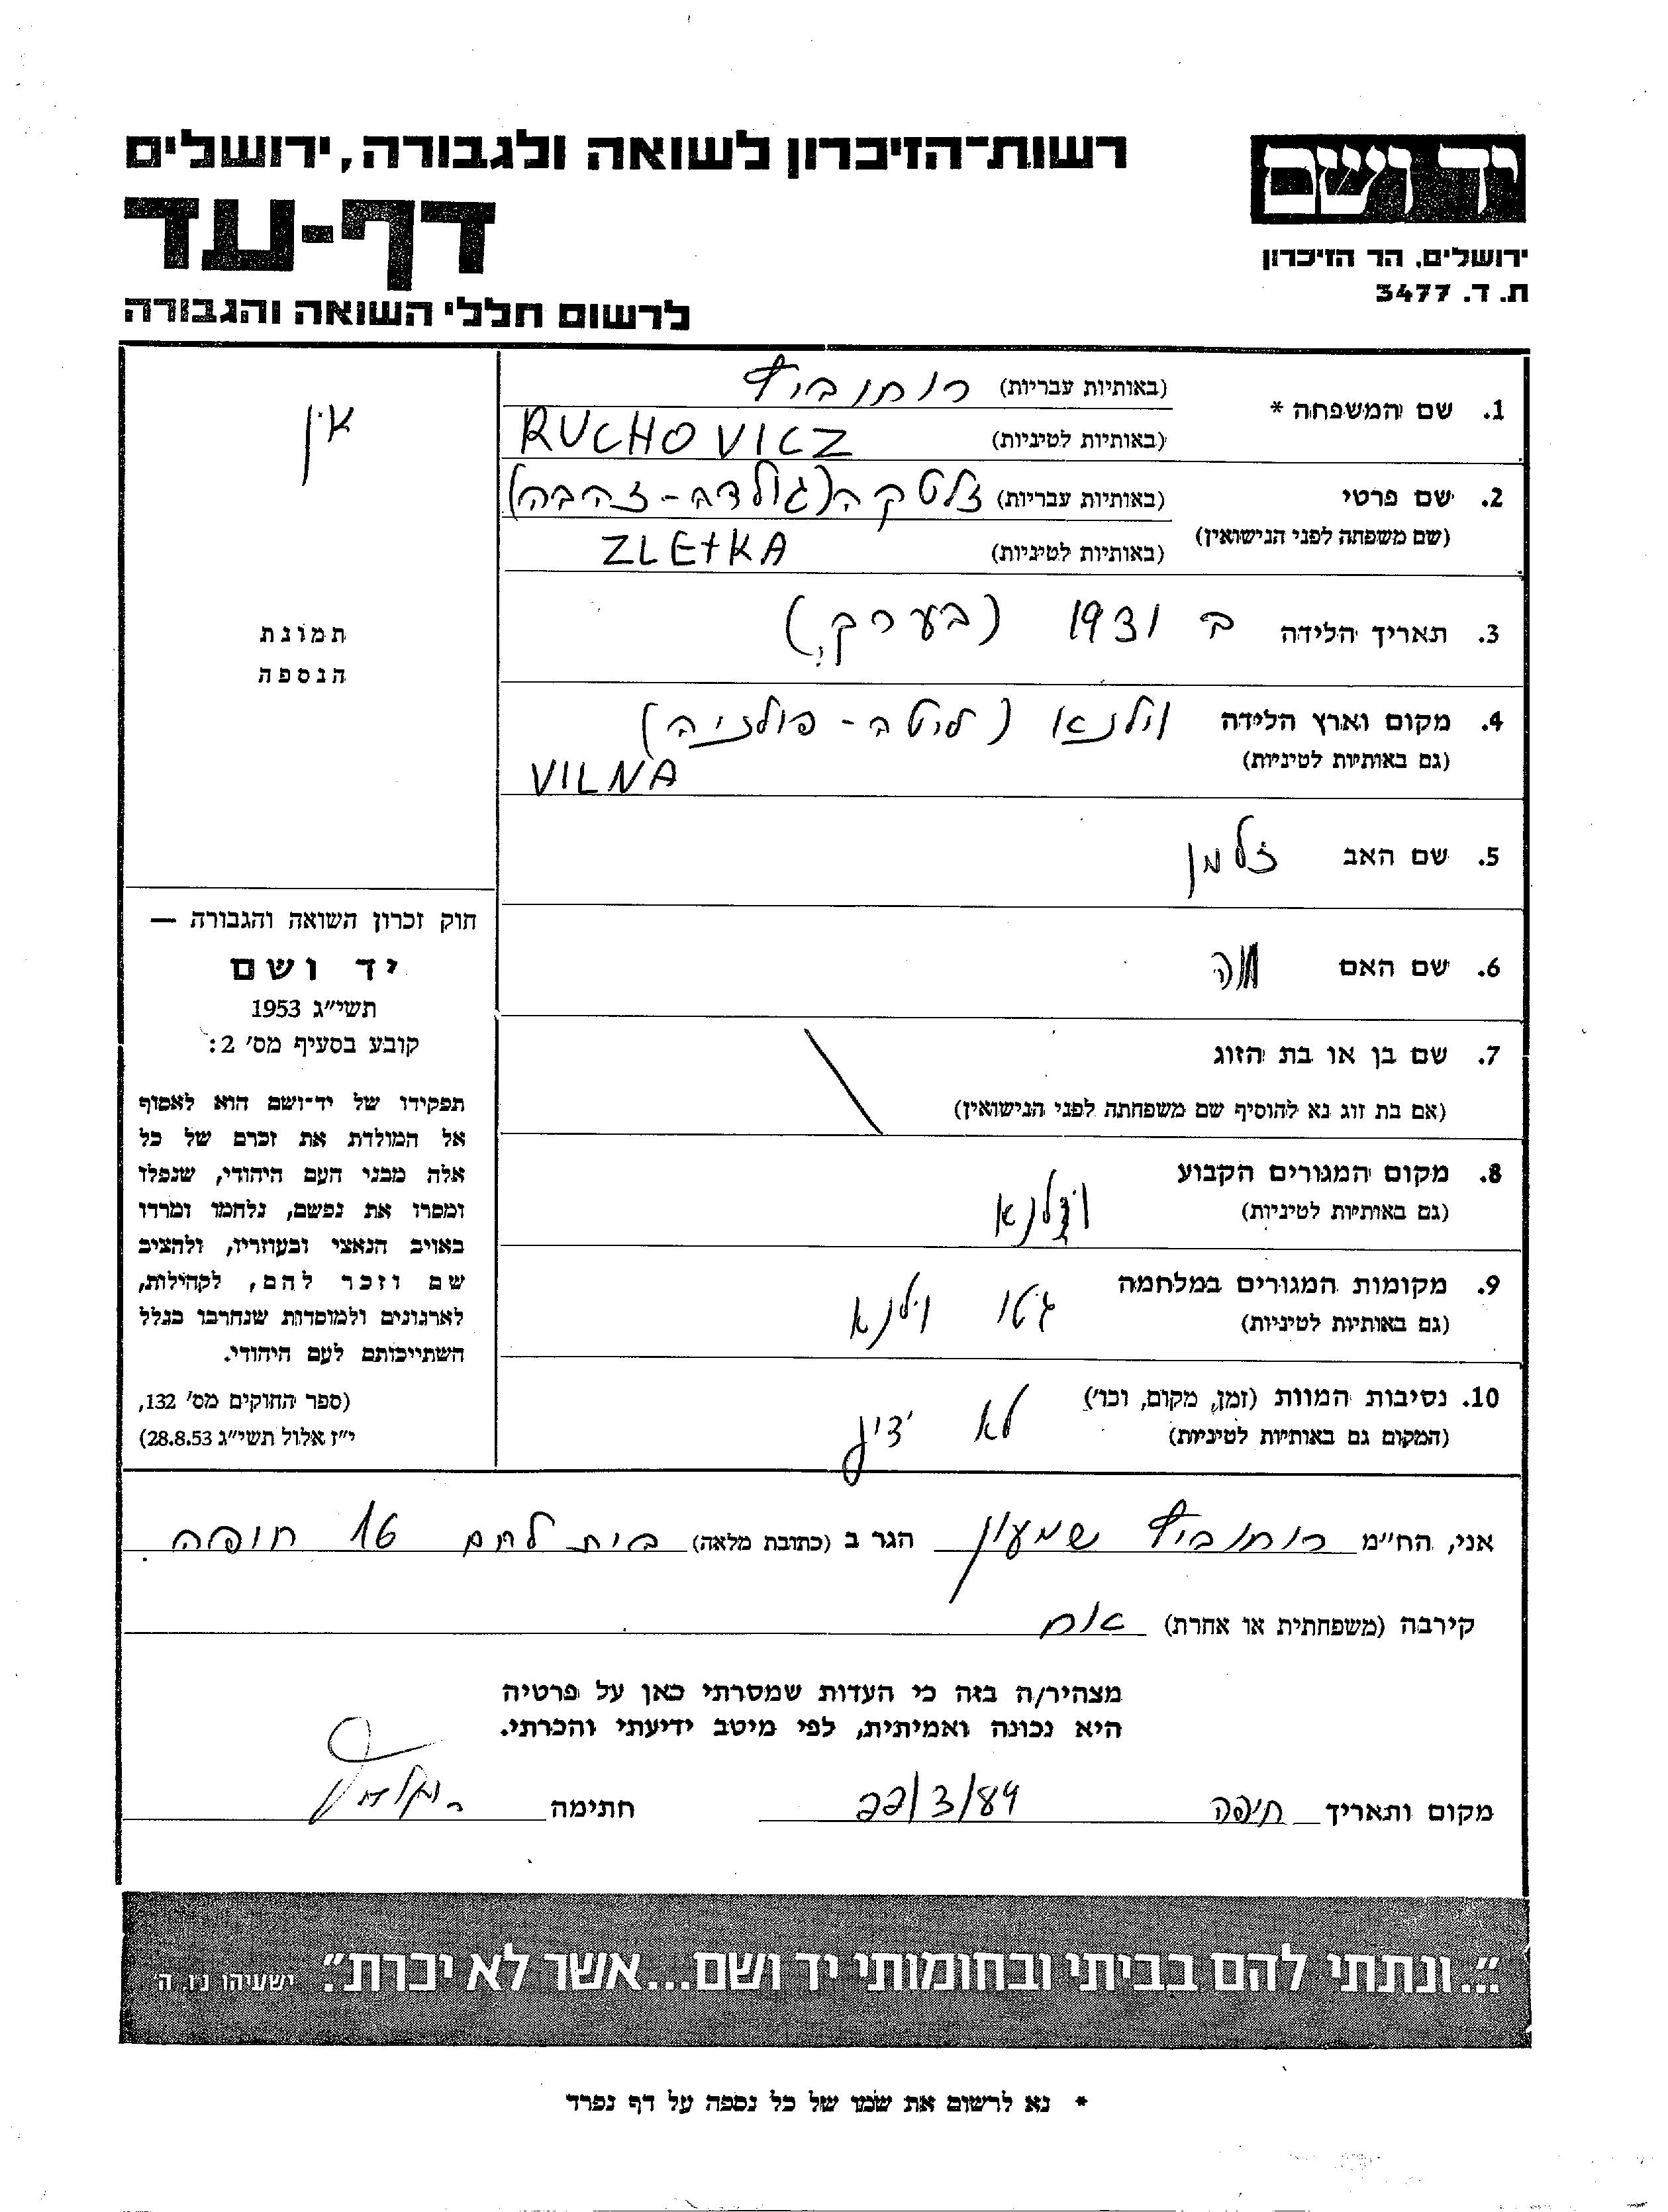 רשות־הזיכרון לשואה ולגבורה, ירושלים
יד ושם
דף-עד
ירושלים, הר הזיכרון
ת. ד. 3477
לרשום חללי השואה והגבורה
1. שם המשפחה * (באותיות עבריות) רוחוביץ
(באותיות לטיניות) RUCHOVICZ
2. שם פרטי (באותיות עבריות) זלטקה (גולדה-זהבה)
(שם משפחה לפני הנישואין) (באותיות לטיניות) ZLEtKA
3. תאריך הלידה ב 1931 (בערך)
4. מקום וארץ הלידה וילנא (ליטה-פולניה)
(גם באותיות לטיניות) VILNA
5. שם האב זלמן
6. שם האם
7. שם בן או בת הזוג
(אם בת זוג נא להוסיף שם משפחתה לפני הנישואין)
8. מקום המגורים הקבוע וילנא
(גם באותיות לטיניות)
9. מקומות המגורים במלחמה גיטו וילנא
(גם באותיות לטיניות)
10. נסיבות המוות (זמן, מקום, וכו') לא ידוע
(המקום גם באותיות לטיניות)
אין
תמונת
הנספה
חוק זכרון השואה והגבורה —
יד ושם
תשי"ג 1953
קובע בסעיף מס' 2:
תפקידו של יד־ושם הוא לאסוף
אל המולדת את זכרם של כל
אלה מבני העם היהודי, שנפלו
ומסרו את נפשם, נלחמו ומרדו
באויב הנאצי ובעוזריו, ולהציב
שם וזכר להם, לקהילות,
לארגונים ולמוסדות שנחרבו בגלל
השתייכותם לעם היהודי.
(ספר החוקים מס' 132,
י"ז אלול תשי"ג 28.8.53)
אני, הח"מ רוחוביץ שמעון הגר ב (כתובת מלאה) בית לחם 16 חיפה
קירבה (משפחתית או אחרת) אח
מצהיר/ה בזה כי העדות שמסרתי כאן על פרטיה
היא נכונה ואמיתית, לפי מיטב ידיעתי והכרתי.
מקום ותאריך חיפה 22/3/89 חתימה
"...ונתתי להם בביתי ובחומותי יד ושם...אשר לא יכרת". ישעיהו נ"ו, ה
* נא לרשום את שמו של כל נספה על דף נפרד